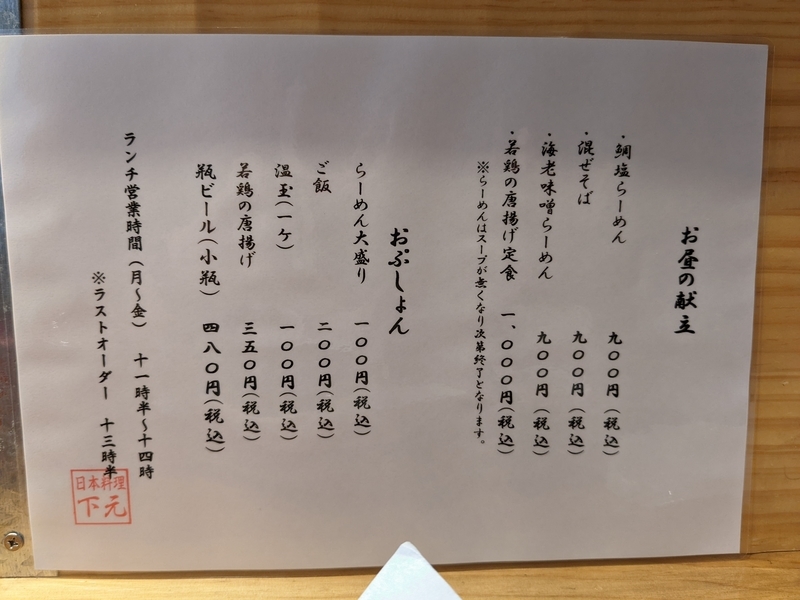 お昼の献立
・鯛塩らーめん 九〇〇円(税込)
・混ぜそば 九〇〇円(税込)
・海老味噌らーめん 九〇〇円(税込)
・若鶏の唐揚げ定食 一、〇〇〇円(税込)
※らーめんはスープが無くなり次第終了となります。
おぷしょん
らーめん大盛り 一〇〇円(税込)
ご飯 二〇〇円(税込)
温玉(一ケ) 一〇〇円(税込)
若鶏の唐揚げ 三五〇円(税込)
瓶ビール(小瓶) 四八〇円(税込)
ランチ営業時間(月~金) 十一時半~十四時
※ラストオーダー 十三時半
日本料理
下元